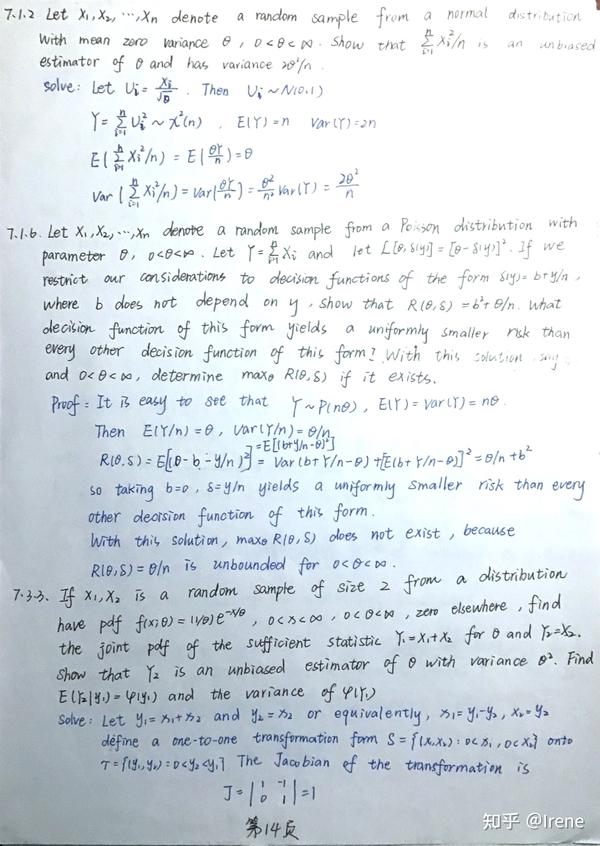 7.1.2 Let X₁,X₂,⋯,Xn denote a random sample from a normal distribution
with mean zero variance θ, 0<θ<∞. Show that Σⁿᵢ₌₁Xᵢ²/n is an unbiased
estimator of θ and has variance 2θ²/n.
solve: Let Uᵢ = Xᵢ/√θ. Then Uᵢ ~ N(0.1)
Y = Σⁿᵢ₌₁Uᵢ² ~ χ²(n). E(Y)=n Var(Y)=2n
E(Σⁿᵢ₌₁Xᵢ²/n) = E(θY/n) = θ
Var(Σⁿᵢ₌₁Xᵢ²/n) = Var(θY/n) = θ²/n² Var(Y) = 2θ²/n
7.1.6. Let X₁,X₂,⋯,Xn denote a random sample from a Poisson distribution with
parameter θ, 0<θ<∞. Let Y=Σⁿᵢ₌₁Xᵢ and let L[θ,δ(y)]=[θ-δ(y)]². If we
restrict our considerations to decision functions of the form δ(y)=b+y/n,
where b does not depend on y, show that R(θ,δ)=b²+θ/n. What
decision function of this form yields a uniformly smaller risk than
every other decision function of this form? With this solution, say
and 0<θ<∞, determine maxθ R(θ,δ) if it exists.
Proof: It is easy to see that Y~P(nθ), E(Y)=Var(Y)=nθ.
Then E(Y/n)=θ, Var(Y/n)=θ/n
=E[(b+Y/n-θ)²]
R(θ,δ)=E[(θ-b-y/n)²] = Var(b+Y/n-θ)+[E(b+Y/n-θ)]²=θ/n+b²
so taking b=0, δ=y/n yields a uniformly smaller risk than every
other decision function of this form.
With this solution, maxθ R(θ,δ) does not exist, because
R(θ,δ)=θ/n is unbounded for 0<θ<∞.
7.3.3. If X₁,X₂ is a random sample of size 2 from a distribution
have pdf f(x;θ)=(1/θ)e^(-x/θ), 0<x<∞, 0<θ<∞, zero elsewhere, find
the joint pdf of the sufficient statistic Y₁=X₁+X₂ for θ and Y₂=X₂.
Show that Y₂ is an unbiased estimator of θ with variance θ². Find
E(Y₂|y₁)=φ(y₁) and the variance of φ(Y₁)
Solve: Let y₁=x₁+x₂ and y₂=x₂ or equivalently, x₁=y₁-y₂, x₂=y₂
define a one-to-one transformation form S={(x₁,x₂):0<x₁,0<x₂} onto
T={(y₁,y₂):0<y₂<y₁} The Jacobian of the transformation is
J=|1 -1
0 1|=1
第14页
知乎 @Irene